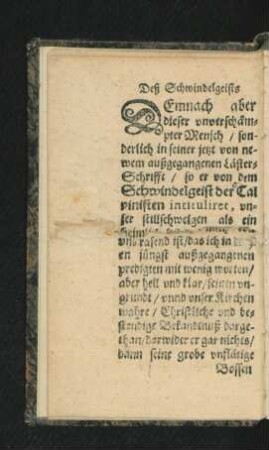 Deß Schwindelgeists
DEmnach aber
dieser vnverschäm-
pter Mensch / son-
derlich in seiner jetzt von ne-
wem außgegangenen Läster-
Schrifft / so er von dem
Schwindelgeist der Cal
vinisten intituliret, vn-
ser stillschweigen als ein
rasend ist / das ich in
en jüngst außgegangenen
predigten mit wenig worten /
aber hell vnd klar / seinen vn-
grundt / vnnd vnser Kirchen
wahre / Christliche vnd be-
stendige Bekandtnuß darge-
than / darwider er gar nichts /
dann seine grobe vnflätige
Bossen